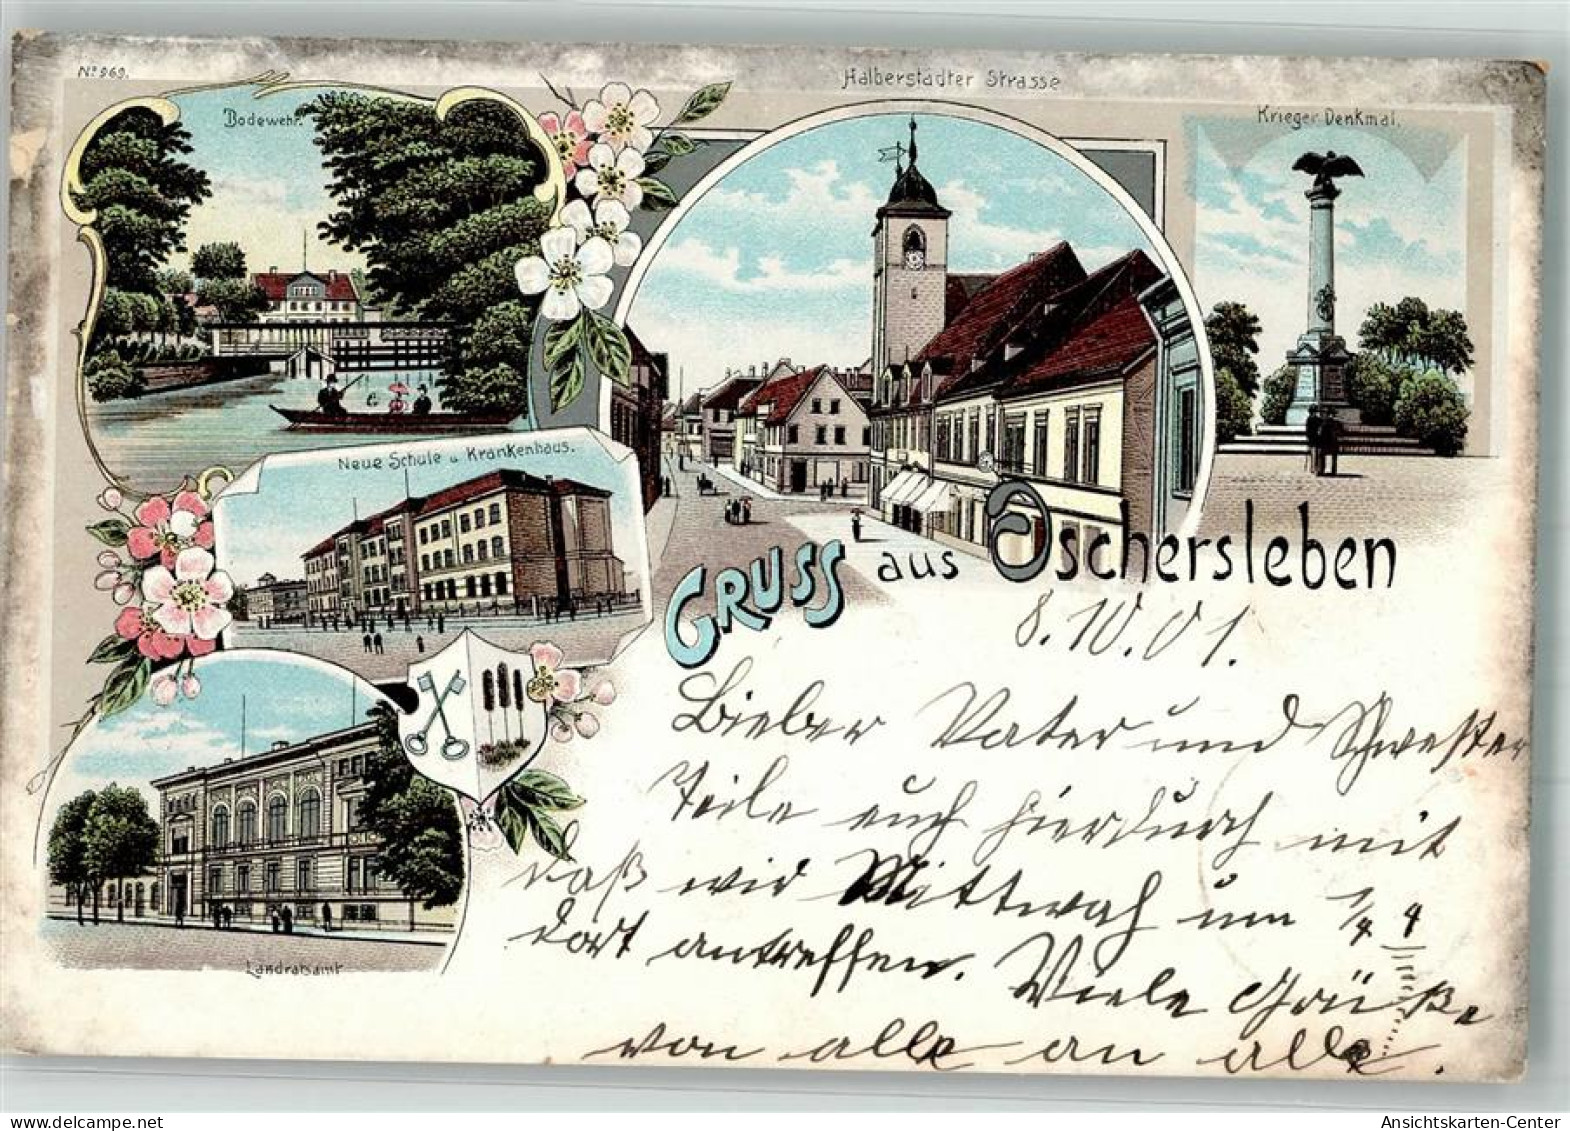 No 969.
Bodewehr.
Halberstädter Strasse
Krieger Denkmal.
Neue Schule u. Krankenhaus.
Landratsamt
GRUSS aus Oschersleben
8.10.01.
Lieber Vater und Schwester
Teile euch hierdurch mit
daß wir Mittwoch um 1/4 4
dort antreffen. Viele Grüße
von alle an alle.
AnsichtsKarten-Center